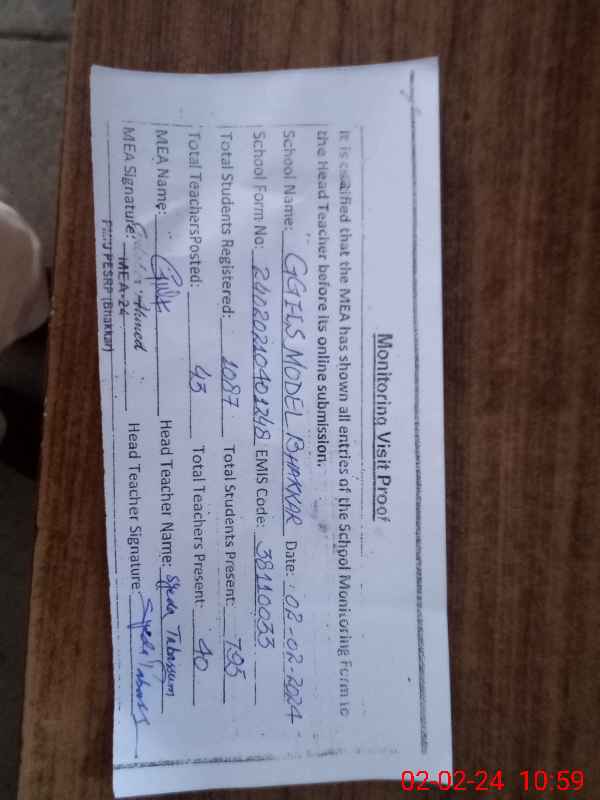 Monitoring Visit Proof
It is certified that the MEA has shown all entries of the School Monitoring Form to
the Head Teacher before its online submission.
School Name: GGELS MODEL BHAKKAR Date: 02-02-2024
School Form No: 2402021040 1248 EMIS Code: 38110033
Total Students Registered: 1087 Total Students Present: 795
Total TeachersPosted: 43 Total Teachers Present: 40
MEA Name: Head Teacher Name: Syeda Tabassum
MEA Signature: Ahmed Head Teacher Signature: Syeda Tabass
MEA-24
PMIU PESRP (Bhakkar)
02-02-24 10:59